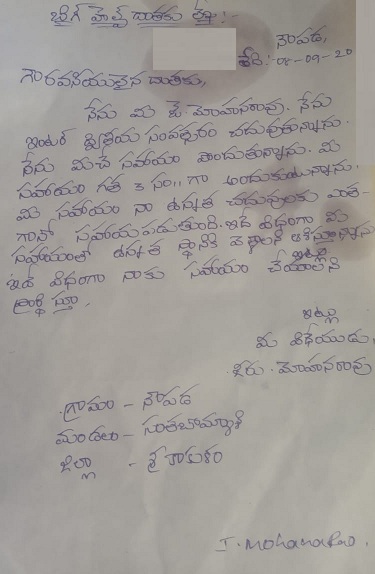 బిగ్ హెల్ప్ దాతకు లేఖ:-
నౌపడ,
తేది: 08-09-20
గౌరవనీయులైన దాతకు,
నేను మీ జె. మోహనరావు. నేను
ఇంటర్ ద్వితీయ సంవత్సరం చదువుతున్నాను.
నేను మీచే సహాయం పొందుతున్నాను. మీ
సహాయం గత 3 సం,, గా అందుకుంటున్నాను.
మీ సహాయం నా ఉన్నత చదువులకు ఎంత-
గానో సహాయపడుతుంది. ఇదే విధంగా మీ
సహాయంతో ఉన్నత స్థానికి వెళ్లాలని ఆశిస్తున్నాను
ఇదే విధంగా నాకు సహాయం చేయాలని
ప్రార్థిస్తూ,
ఇట్లు
మీ విధేయుడు,
మోహనరావు
గ్రామం - నౌపడ
మండలం - సంతబొమ్మాళి
జిల్లా - శ్రీకాకుళం
J. Mohanarao.